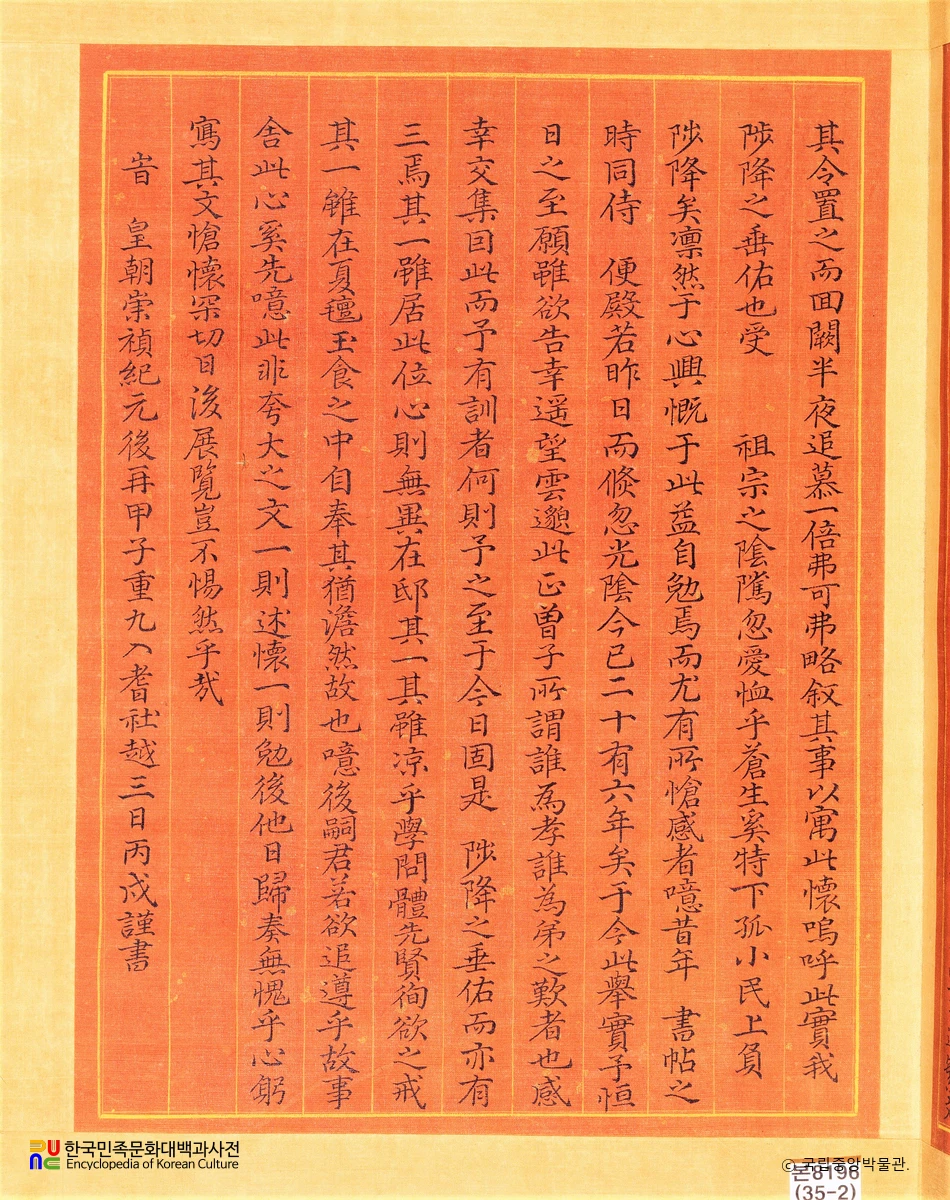 其令置之而回闕半夜追慕一倍弗可弗略敍其事以寓此懷嗚呼此實我
陟降之垂佑也受 祖宗之陰騭忽愛恤乎蒼生奚特下孤小民上負
陟降矣凛然于心興慨于此益自勉焉而尤有所愴感者噫昔年 書帖之
時同侍 便殿若昨日而倐忽光陰今已二十有六年矣于今此擧實予恒
日之至願雖欲告幸遥望雲邈此正曽子所謂誰爲孝誰爲弟之歎者也感
幸交集因此而予有訓者何則予之至于今日固是 陟降之垂佑而亦有
三焉其一雖居此位心則無異在邸其一其雖凉乎學問體先賢徇欲之戒
其一雖在夏氊玉食之中自奉其猶澹然故也噫後嗣君若欲追遵乎故事
舍此心奚先噫此非夸大之文一則述懷一則勉後他日歸奏無愧乎心躬
寫其文愴懷采切日後展覽豈不惕然乎哉
旹 皇朝崇禎紀元後再甲子重九入耆社越三日丙戌謹書
한국민족문화대백과사전
Encyclopedia of Korean Culture
ⓒ 국립중앙박물관.
본8196
(35-2)